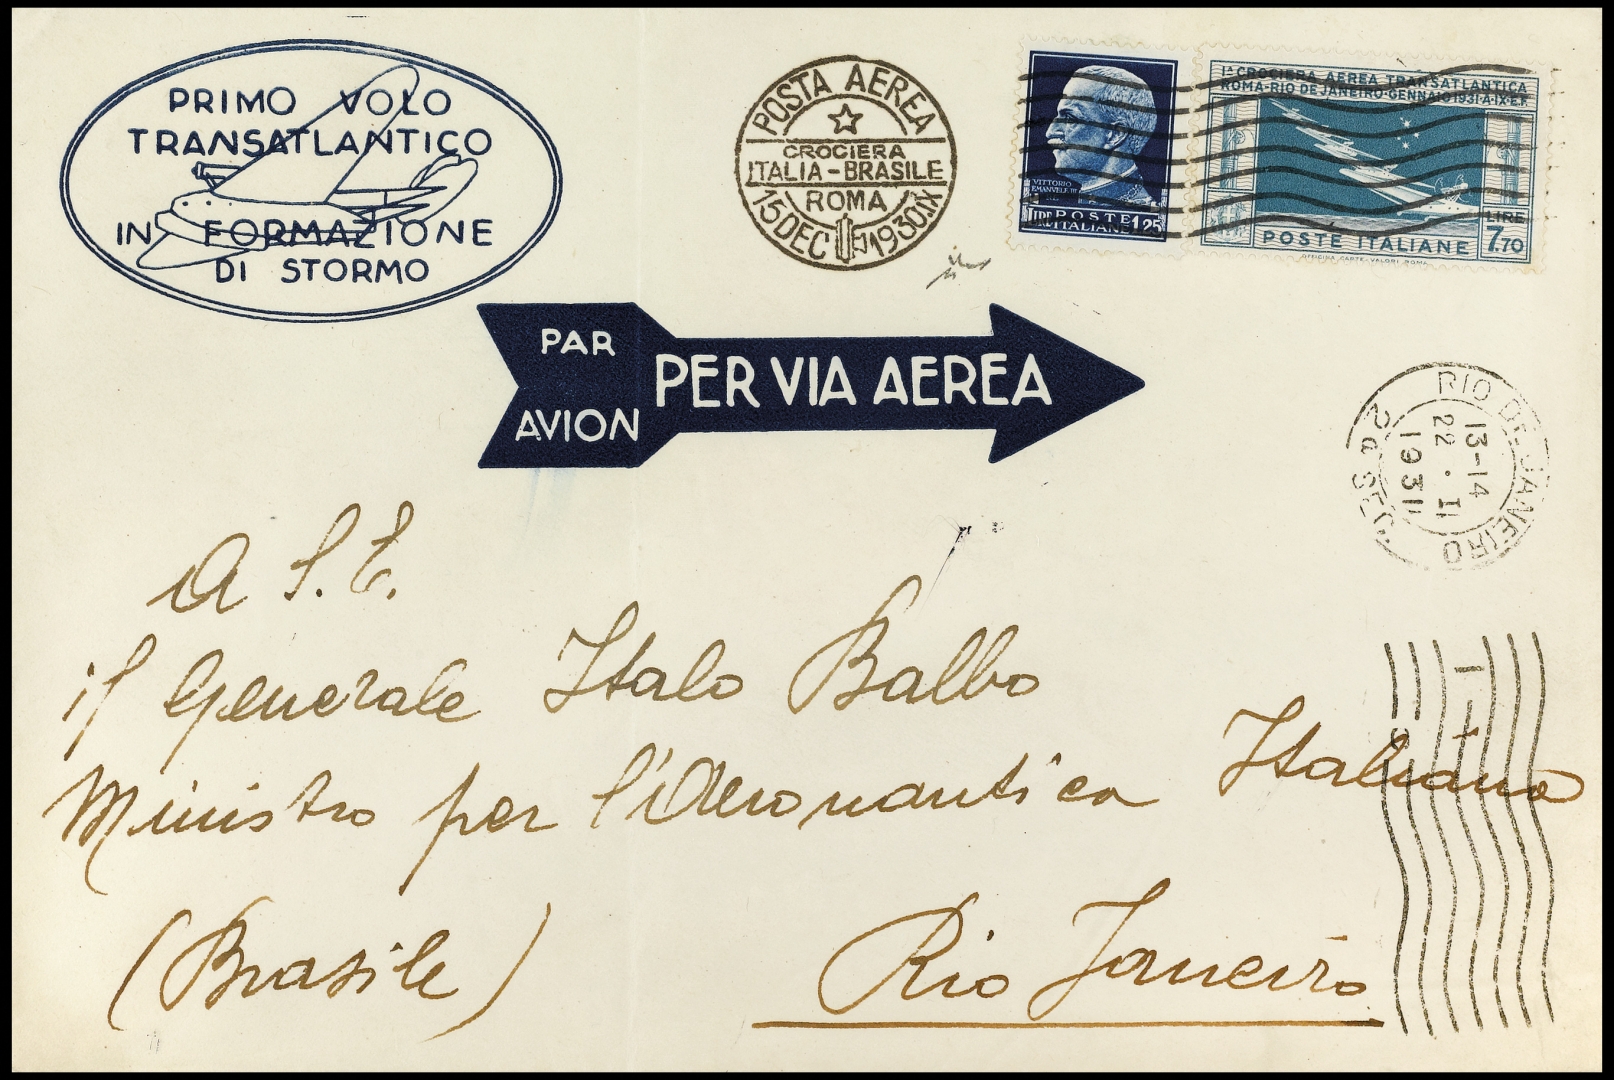 PRIMO VOLO
TRANSATLANTICO
IN FORMAZIONE
DI STORMO
POSTA AEREA
CROCIERA
ITALIA-BRASILE
ROMA
15 DEC 1930.IX
VITTORIO
EMANVELE III
POSTE
ITALIANE
LIRE 1,25
Iª CROCIERA AEREA TRANSATLANTICA
ROMA-RIO DE JANEIRO-GENNAIO 1931·A·IX·E.F.
LIRE
7,70
POSTE ITALIANE
OFFICINA CARTE-VALORI ROMA
PAR
AVION
PER VIA AEREA
RIO DE JANEIRO
13-14
22·II
1931
2ª SEC
A S. E.
il Generale Italo Balbo
Ministro per l'Aeronautica Italiana
(Brasile) Rio Janeiro